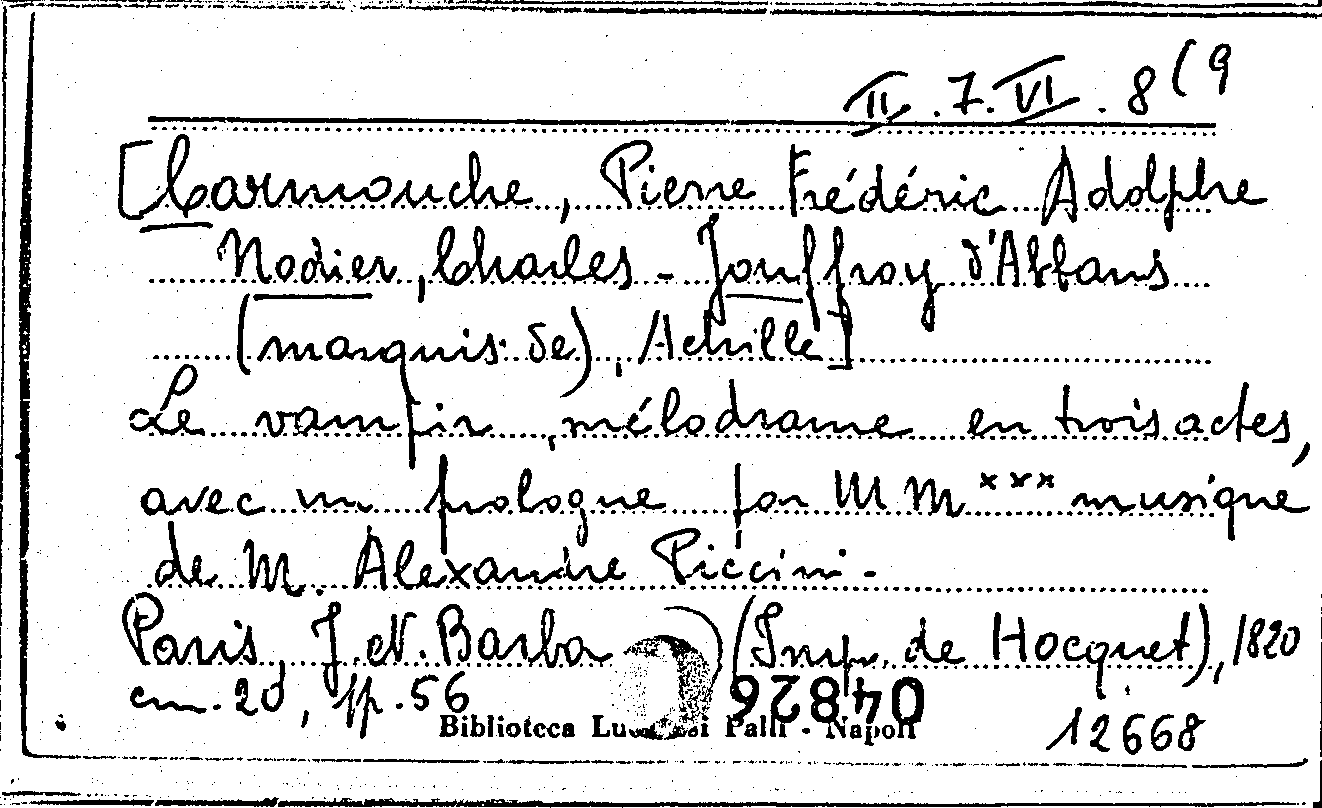 II. 7. VI. 8 (9
[Carmouche, Pierre Frédéric Adolphe
Nodier, Charles - Jouffroy d'Abbans
(marquis de), Achille]
Le vampir, mélodrame en trois actes,
avec un prologue par MM xxx musique
de M. Alexandre Piccini -
Paris, J. N. Barba (Imp. de Hocquet), 1820
cm. 20, pp. 56
04826
Biblioteca Lucchesi Palli - Napoli
12668